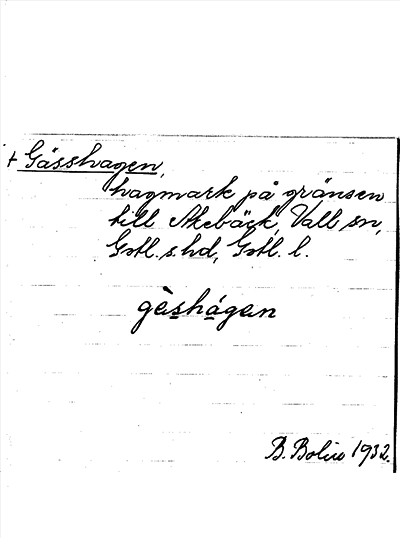 + Gässhagen,
hagmark på gränsen
till Akebäck, Vall sn,
Gotl. s. hd, Gotl. l.
gèshágen
B. Bolin 1932.